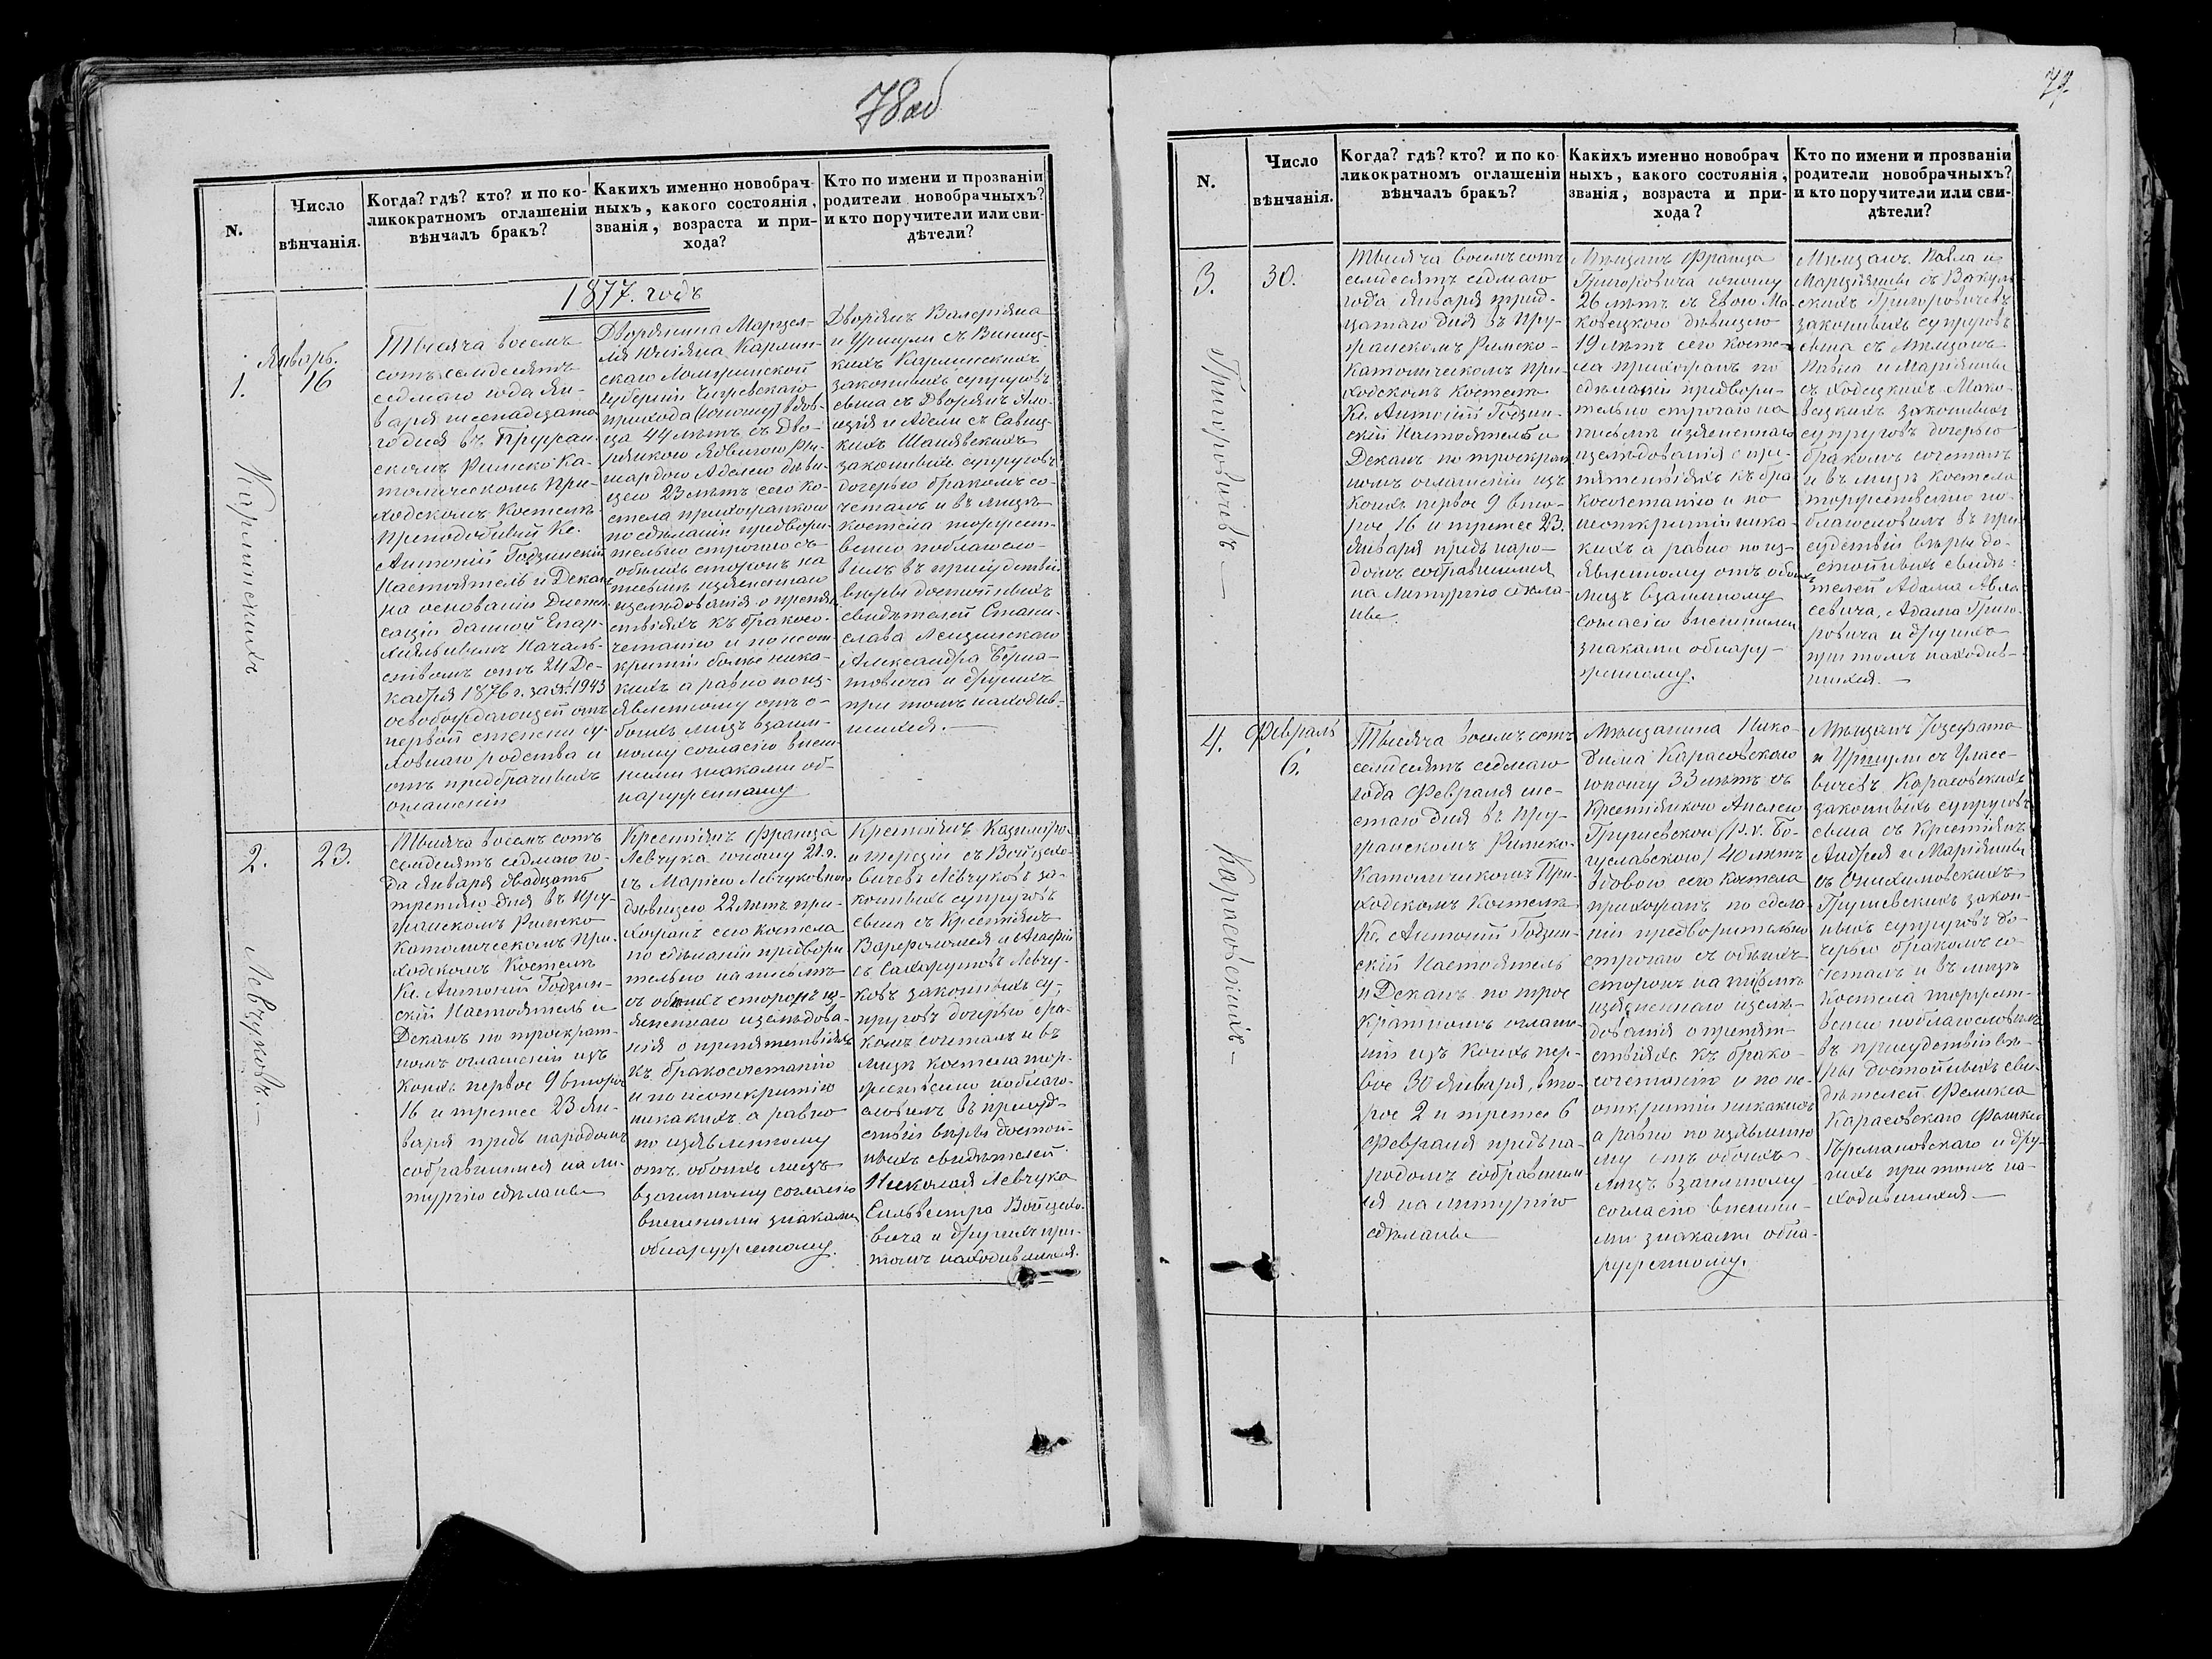 78об
N.
Число
вѣнчанія.
Когда? гдѣ? кто? и по ко-
ликократномъ оглашеніи
вѣнчалъ бракъ?
Какихъ именно новобрач-
ныхъ, какого состоянія,
званія, возраста и при-
хода?
Кто по имени и прозваніи
родители новобрачныхъ?
и кто поручители или сви-
дѣтели?
1877. годъ
1.
Январь.
16
Карлинскихъ
Тысяча восемь
сотъ семдесятъ
седмаго года Ян-
варя шеснадцата
го дня въ Пружан-
скомъ Римско Ка-
толическомъ При-
ходскомъ Костелѣ
Преподобный Кс.
Антоній Годзинскій
Настоятель и Деканъ
на основаніи Диспен
саціи данной Епар-
хіяльнымъ Началь-
ствомъ отъ 24 Де-
кабря 1876 г. за № 1943
освобождающей отъ
первой степени ду-
ховнаго родства и
отъ предбрачныхъ
оглашеній
Дворянина Марцел-
лія Юліяна Карлин-
скаго Ломжинской
Губерніи
прихода (юношу) вдов-
ца 44 лѣтъ съ Дво-
рянкою Ядвигою Ри-
шардою Аделею дѣви-
цею 23 лѣтъ сего Ко-
стела прихожанкою
по сдѣланіи предвори-
тельно строгаго съ
обѣихъ сторонъ на
письмѣ изясненнаго
изслѣдованія о препят
ствіяхъ къ бракосо-
четанію и по неот-
крытіи болѣе ника-
кихъ а равно по из-
явленному отъ о-
боихъ лицъ взаим-
ному согласію внеш-
ними знаками об-
наруженному
Дворянъ Валеріяна
и Уршули съ Виниц-
кихъ Карлинскихъ
законныхъ супруговъ
сына съ Дворянъ Ало-
изія и Адели съ Савиц-
кихъ Шанявскихъ
законныхъ супруговъ
дочерью бракомъ со-
четалъ и въ лицѣ
костела торжест-
венно поблагосло-
вилъ въ присудствіи
вѣры достойныхъ
свидѣтелей Стани-
слава Лещинскаго
Александра Берна-
товича и другихъ
при томъ находив-
шихся.—
2.
23.
Левчуковъ.—
Тысяча восемъ сотъ
семдесятъ седмаго го-
да Января двадцать
третяго дня въ Пру-
жанскомъ Римско
Католическомъ При-
ходскомъ Костелѣ
Кс. Антоній Годзин-
скій Настоятель и
Деканъ по троекрат-
номъ оглашеніи изъ
коихъ первое 9 второе
16 и третее 23 Ян-
варя предъ народомъ
собравшимся на ли-
тургію сдѣланы
Крестянъ Франца
Левчука юношу 21 л.
съ Маріею Левчуковною
дѣвицею 22 лѣтъ при-
хожанъ сего костела
по сдѣланіи предвори
тельно на письмѣ
съ обѣихъ сторонъ из-
ясненнаго изслѣдова-
нія о препятствіяхъ
къ бракосочетанію
и по неоткрытію
никакихъ а равно
по изявленному
отъ обоихъ лицъ
взаимному согласію
внешними знаками
обнаруженному.
Крестянъ Казимира
и Терезіи съ Войцехо-
вичевъ Левчуковъ за-
конныхъ супруговъ
сына съ Крестянъ
Варфоломея и Агафіи
съ Сахарутовъ Левчу-
ковъ законныхъ су-
пруговъ дочерью бра-
комъ сочеталъ и въ
лицѣ костела тор-
жественно поблаго-
словилъ въ присуд-
ствіи вѣры достой-
ныхъ свидѣтелей
Николая Левчука
Сильвестра Войцехо-
вича и другихъ при-
томъ находившихся.
79.
N.
Число
вѣнчанія.
Когда? гдѣ? кто? и по ко
ликократномъ оглашеніи
вѣнчалъ бракъ?
Какихъ именно новобрач
ныхъ, какого состоянія,
званія, возраста и при-
хода?
Кто по имени и прозваніи
родители новобрачныхъ?
и кто поручители или сви-
дѣтели?
3.
30.
Григоровичевъ —
Тысяча восемъ сотъ
семдесятъ седмаго
года Января трид-
цатаго дня въ Пру-
жанскомъ Римско-
Католическомъ При-
ходскомъ Костелѣ
Кс. Антоній Годзин-
скій Настоятель и
Деканъ по троекрат
номъ оглашеніи изъ
коихъ первое 9 вто-
рое 16 и третее 23.
Января предъ наро-
домъ собравшимся
на литургію сдѣла-
ны.
Мѣщанъ Франца
Григоровича юношу
26 лѣтъ съ Евою Ма-
ковецкою дѣвицею
19 лѣтъ сего косте-
ла прихожанъ по
сдѣланіи предвори-
тельно строгаго на
письмѣ изясненнаго
изслѣдованія о пре-
пятствіяхъ къ бра
косочетанію и по
неоткрытіи ника-
кихъ а равно по из-
явленному отъ обоихъ
лицъ взаимному
согласію внешними
знаками обнару-
женному.
Мѣщанъ Павла и
Марціянны съ Вакуль
скихъ Григоровичевъ
законныхъ супруговъ
сына съ Мѣщанъ
Павла и Маріянны
съ Ходецкихъ Мако-
вецкихъ законныхъ
супруговъ дочерью
бракомъ сочеталъ
и въ лицѣ Костела
торжественно по-
благословилъ въ при-
судствіи вѣры до-
стойныхъ свидѣ-
телей Адама Авла
севича, Адама Григо-
ровича и другихъ
при томъ находив-
шихся.—
4.
Февраль
6.
Карасовскихъ —
Тысяча восемъ сотъ
семдесятъ седмаго
года Февраля ше-
стаго дня въ Пру-
жанскомъ Римско-
Католическомъ При-
ходскомъ Костелѣ
Кс. Антоній Годзин-
скій Настоятель
и Деканъ по трое
кратномъ оглаше-
ніи изъ коихъ пер-
вое 30 Января, вто-
рое 2 и третее 6
Февраля предъ на-
родомъ собравшим
ся на литургію
сдѣланы
Мѣщанина Нико-
дима Карасовскаго
юношу 33 лѣтъ съ
Крестянкою Анелею
Грушевскою (р.v. Бо-
гуславскою) 40 лѣтъ
вдовою сего костела
прихожанъ по сдела-
ніи предворительно
строгаго съ обѣихъ
сторонъ на письмѣ
изясненнаго изслѣ-
дованія о препят-
ствіяхъ къ брако-
сочетанію и по не-
открытіи никакихъ
а равно по изявленно
му отъ обоихъ
лицъ взаимному
согласію внешни-
ми знаками обна-
руженному.
Мѣщанъ Іозефата
и Уршули съ Улас-
вичевъ Карасовскихъ
законныхъ супруговъ
сына съ Крестянъ
Андрея и Маріянны
Грушевскихъ закон-
ныхъ супруговъ до-
черью бракомъ со-
четалъ и въ лицѣ
Костела торжест-
венно поблагословилъ
въ присудствіи вѣ-
ры достойныхъ сви-
дѣтелей Феликса
Карасовскаго Феликса
и дру-
гихъ при томъ на-
ходившихся—